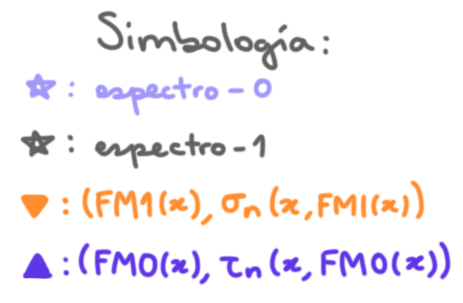 Simbología:
☆: espectro-0
☆: espectro-1
▼: (FM1(x), σn(x, FM1(x))
▲: (FM0(x), τn(x, FM0(x))